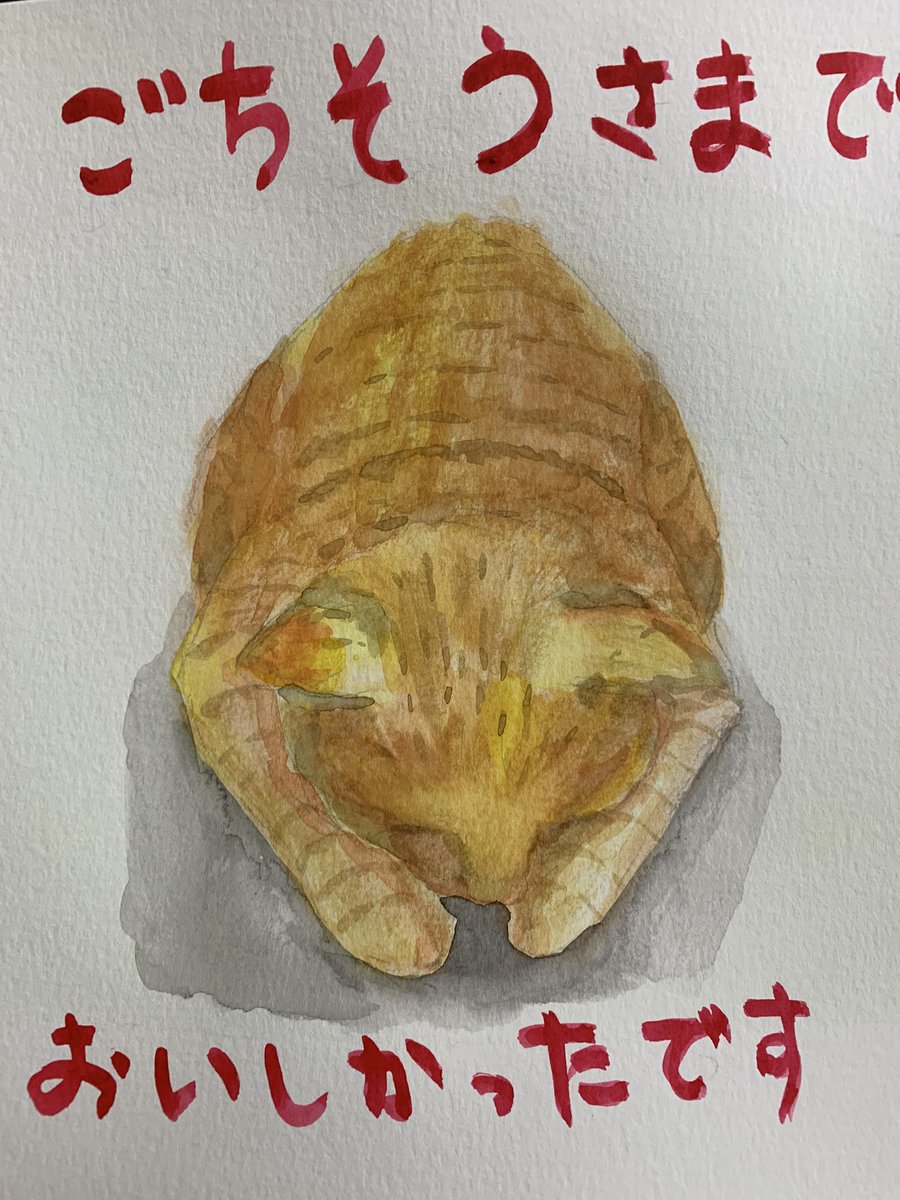 ごちそうさまで
おいしかったです